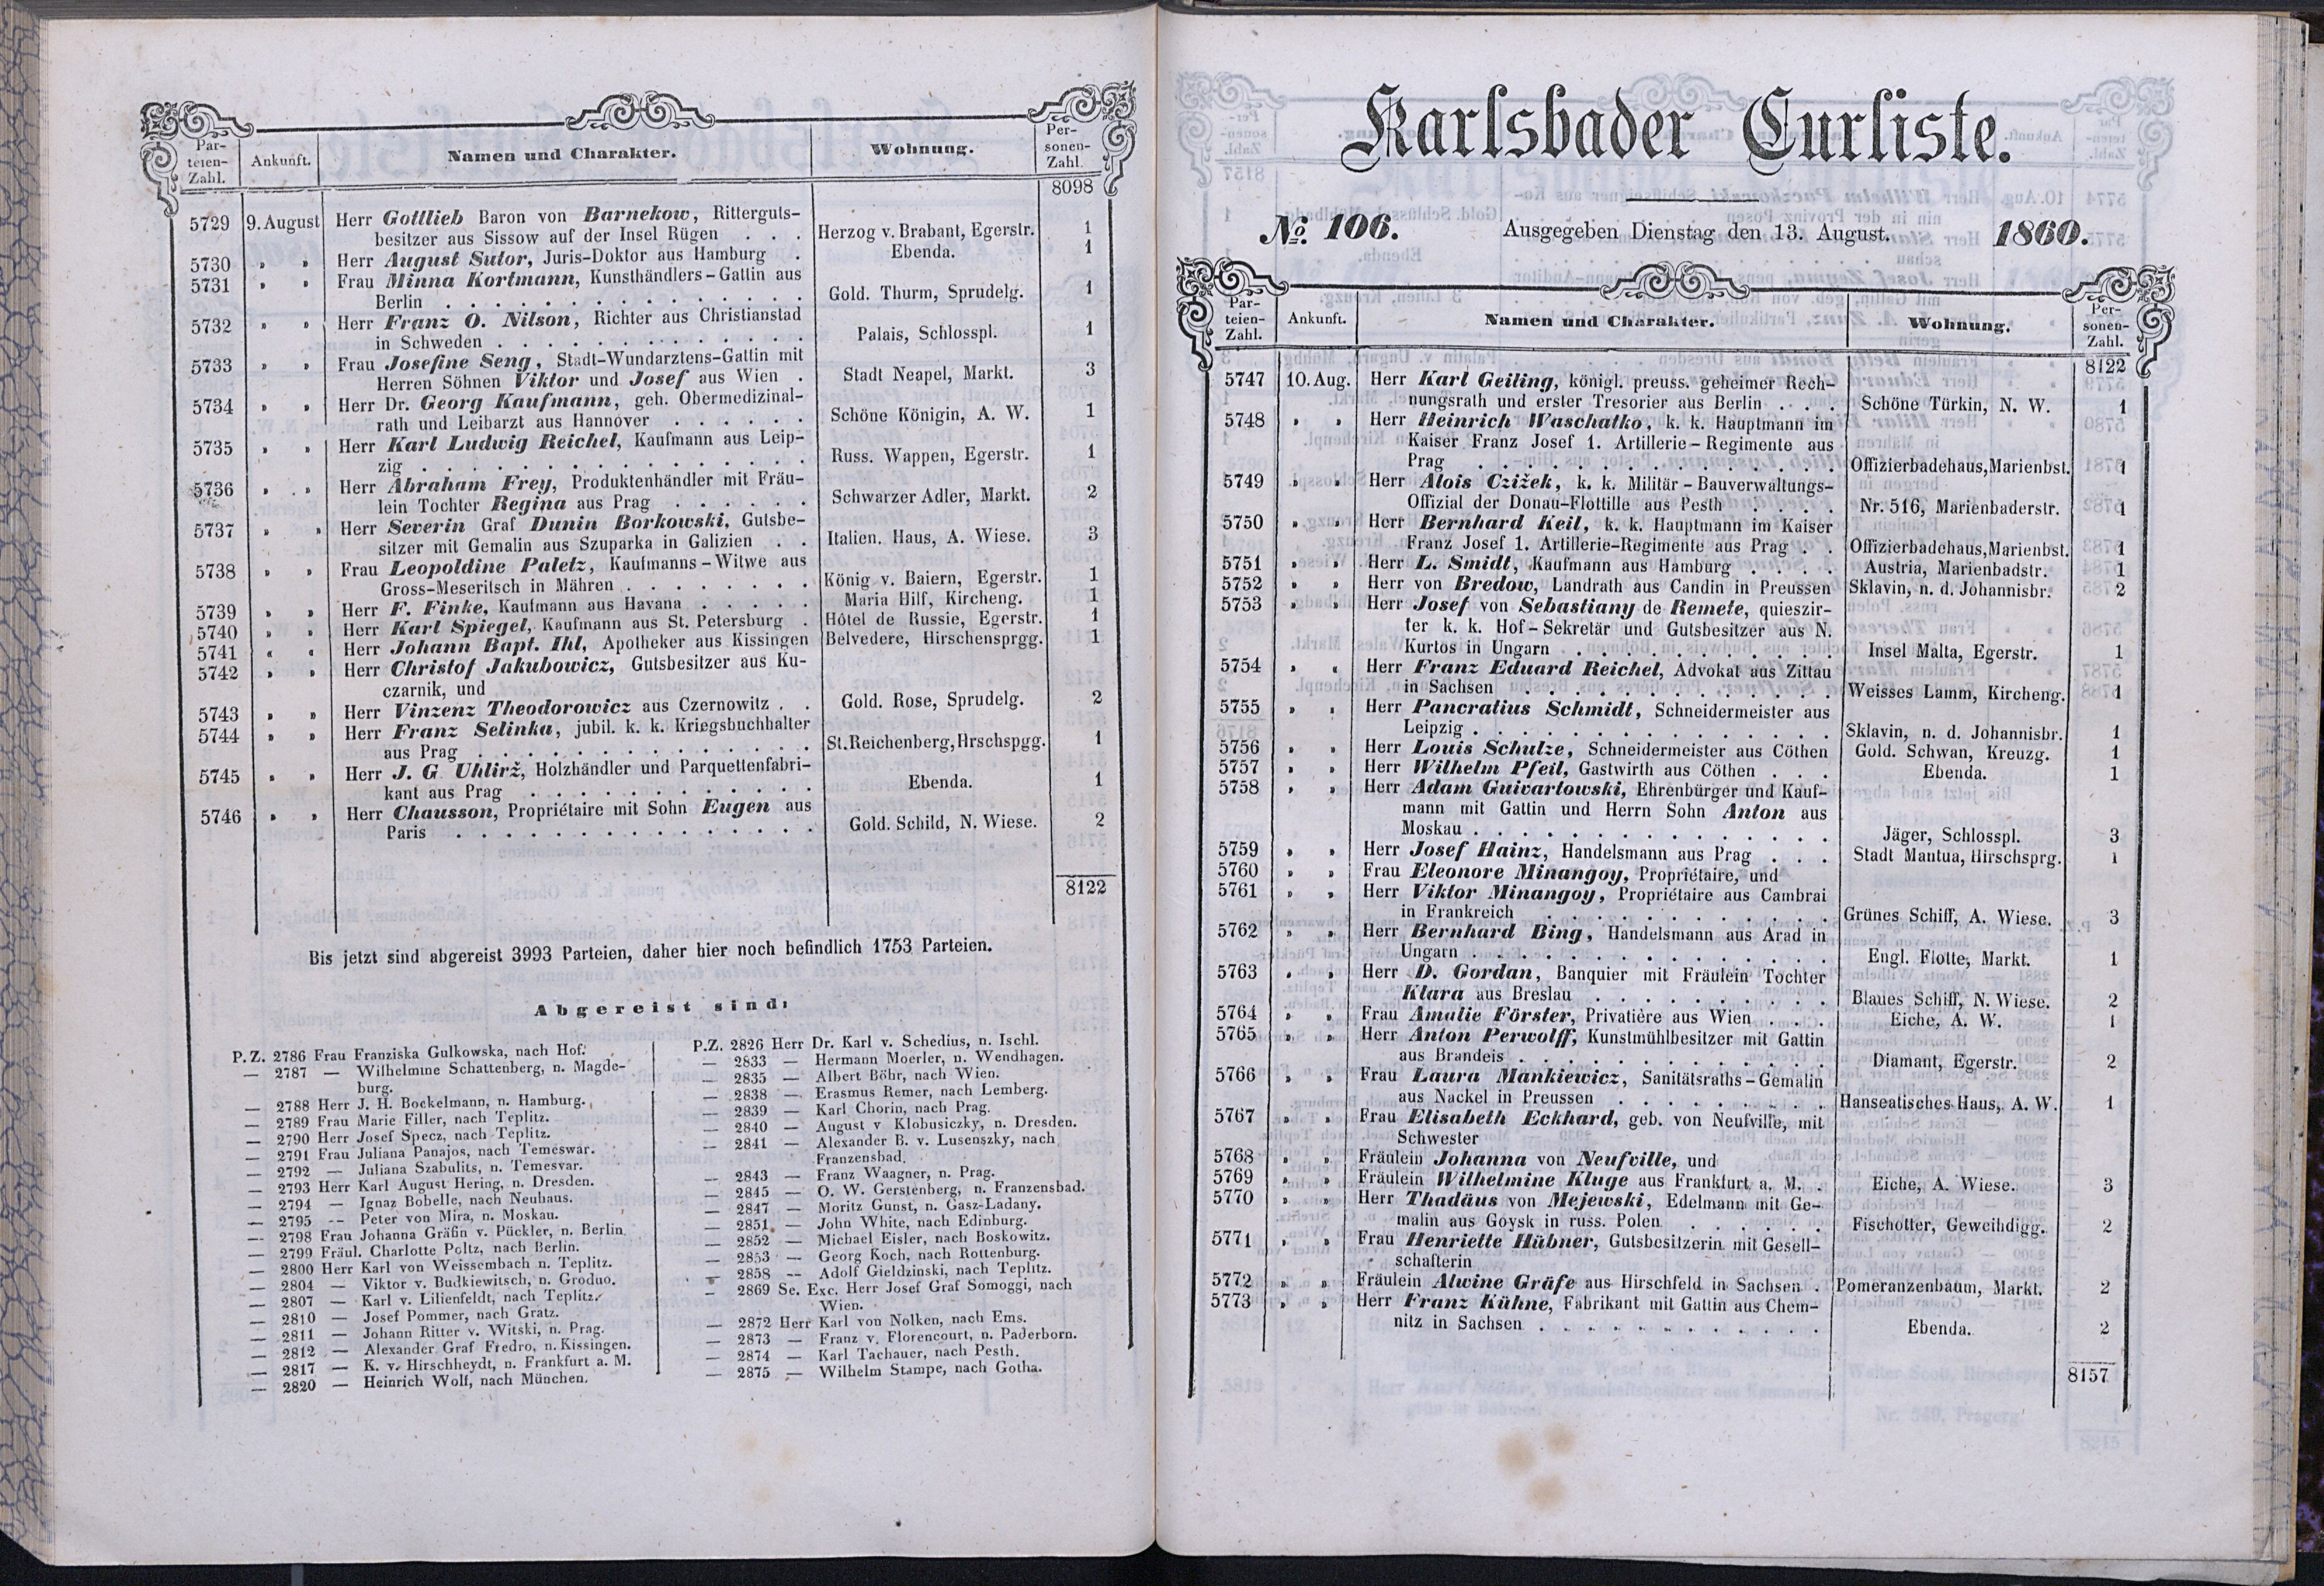 Par-
teien-
Zahl.
Ankunft.
Namen und Charakter.
Wohnung.
Per-
sonen-
Zahl.
8098
5729 9. August Herr Gottlieb Baron von Barnekow, Ritterguts-
besitzer aus Sissow auf der Insel Rügen . . . Herzog v. Brabant, Egerstr. 1
5730 „ „ Herr August Sutor, Juris-Doktor aus Hamburg . Ebenda. 1
5731 „ „ Frau Minna Kortmann, Kunsthändlers-Gattin aus
Berlin . . . . . . . . . . . . . . . Gold. Thurm, Sprudelg. 1
5732 „ „ Herr Franz O. Nilson, Richter aus Christianstad
in Schweden . . . . . . . . . . . . . Palais, Schlosspl. 1
5733 „ „ Frau Josefine Seng, Stadt-Wundarztens-Gattin mit
Herren Söhnen Viktor und Josef aus Wien . Stadt Neapel, Markt. 3
5734 „ „ Herr Dr. Georg Kaufmann, geh. Obermedizinal-
rath und Leibarzt aus Hannover . . . . . . Schöne Königin, A. W. 1
5735 „ „ Herr Karl Ludwig Reichel, Kaufmann aus Leip-
zig . . . . . . . . . . . . . . . . Russ. Wappen, Egerstr. 1
5736 „ „ Herr Abraham Frey, Produktenhändler mit Fräu-
lein Tochter Regina aus Prag . . . . . . Schwarzer Adler, Markt. 2
5737 „ „ Herr Severin Graf Dunin Borkowski, Gutsbe-
sitzer mit Gemalin aus Szuparka in Galizien . . Italien. Haus, A. Wiese. 3
5738 „ „ Frau Leopoldine Paletz, Kaufmanns-Witwe aus
Gross-Meseritsch in Mähren . . . . . . . . König v. Baiern, Egerstr. 1
5739 „ „ Herr F. Finke, Kaufmann aus Havana . . . . . Maria Hilf, Kircheng. 1
5740 „ „ Herr Karl Spiegel, Kaufmann aus St. Petersburg . Hôtel de Russie, Egerstr. 1
5741 „ „ Herr Johann Bapt. Ihl, Apotheker aus Kissingen Belvedere, Hirschensprgg. 1
5742 „ „ Herr Christof Jakubowicz, Gutsbesitzer aus Ku-
czarnik, und
5743 „ „ Herr Vinzenz Theodorowicz aus Czernowitz . . Gold. Rose, Sprudelg. 2
5744 „ „ Herr Franz Selinka, jubil. k. k. Kriegsbuchhalter
aus Prag . . . . . . . . . . . . . . St. Reichenberg, Hrschspgg. 1
5745 „ „ Herr J. G Uhlirž, Holzhändler und Parquettenfabri-
kant aus Prag . . . . . . . . . . . . Ebenda. 1
5746 „ „ Herr Chausson, Propriétaire mit Sohn Eugen aus
Paris . . . . . . . . . . . . . . . Gold. Schild, N. Wiese. 2
8122
Bis jetzt sind abgereist 3993 Parteien, daher hier noch befindlich 1753 Parteien.
Abgereist sind:
P. Z. 2786 Frau Franziska Gulkowska, nach Hof.
— 2787 — Wilhelmine Schattenberg, n. Magde-
burg.
— 2788 Herr J. H. Bockelmann, n. Hamburg.
— 2789 Frau Marie Filler, nach Teplitz.
— 2790 Herr Josef Specz, nach Teplitz.
— 2791 Frau Juliana Panajos, nach Temeswar.
— 2792 — Juliana Szabulits, n. Temesvar.
— 2793 Herr Karl August Hering, n. Dresden.
— 2794 — Ignaz Bobelle, nach Neuhaus.
— 2795 — Peter von Mira, n. Moskau.
— 2798 Frau Johanna Gräfin v. Pückler, n. Berlin
— 2799 Fräul. Charlotte Peltz, nach Berlin.
— 2800 Herr Karl von Weissembach n. Teplitz.
— 2804 — Viktor v. Budkiewitsch, n. Grodno.
— 2807 — Karl v. Lilienfeldt, nach Teplitz.
— 2810 — Josef Pommer, nach Gratz.
— 2811 — Johann Ritter v. Witski, n. Prag.
— 2812 — Alexander Graf Fredro, n. Kissingen.
— 2817 — K. v. Hirschheydt, n. Frankfurt a. M.
— 2820 — Heinrich Wolf, nach München.
P.Z. 2826 Herr Dr. Karl v. Schedius, n. Ischl.
— 2833 — Hermann Moerler, n. Wendhagen.
— 2835 — Albert Böhr, nach Wien.
— 2838 — Erasmus Remer, nach Lemberg.
— 2839 — Karl Chorin, nach Prag.
— 2840 — August v Klobusiczky, n. Dresden.
— 2841 — Alexander B. v. Lusenszky, nach
Franzensbad.
— 2843 — Franz Waagner, n. Prag.
— 2845 — O. W. Gerstenberg, n. Franzensbad.
— 2847 — Moritz Gunst, n. Gasz-Ladany.
— 2851 — John White, nach Edinburg.
— 2852 — Michael Eisler, nach Boskowitz.
— 2853 — Georg Koch, nach Rottenburg.
— 2858 — Adolf Gieldzinski, nach Teplitz.
— 2869 Se. Exc. Herr Josef Graf Somoggi, nach
Wien.
— 2872 Herr Karl von Nolken, nach Ems.
— 2873 — Franz v. Florencourt, n. Paderborn.
— 2874 — Karl Tachauer, nach Pesth.
— 2875 — Wilhelm Stampe, nach Gotha.
Karlsbader Curliste.
No. 106. Ausgegeben Dienstag den 13. August. 1860.
Par-
teien-
Zahl.
Ankunft.
Namen und Charakter.
Wohnung.
Per-
sonen-
Zahl.
8122
5747 10. Aug. Herr Karl Geiling, königl. preuss. geheimer Rech-
nungsrath und erster Tresorier aus Berlin . . . Schöne Türkin, N. W. 1
5748 „ „ Herr Heinrich Waschatko, k. k. Hauptmann im
Kaiser Franz Josef 1. Artillerie-Regimente aus
Prag . . . . . . . . . . . . . . . Offizierbadehaus, Marienbst. 1
5749 „ „ Herr Alois Czižek, k. k. Militär-Bauverwaltungs-
Offizial der Donau-Flottille aus Pesth . . . . Nr. 516, Marienbaderstr. 1
5750 „ „ Herr Bernhard Keil, k. k. Hauptmann im Kaiser
Franz Josef 1. Artillerie-Regimente aus Prag . . Offizierbadehaus, Marienbst. 1
5751 „ „ Herr L. Smidt, Kaufmann aus Hamburg . . . . Austria, Marienbadstr. 1
5752 „ „ Herr von Bredow, Landrath aus Candin in Preussen Sklavin, n. d. Johannisbr. 2
5753 „ „ Herr Josef von Sebastiany de Remete, quieszir-
ter k. k. Hof-Sekretär und Gutsbesitzer aus N.
Kurtos in Ungarn . . . . . . . . . . . Insel Malta, Egerstr. 1
5754 „ „ Herr Franz Eduard Reichel, Advokat aus Zittau
in Sachsen . . . . . . . . . . . . . Weisses Lamm, Kircheng. 1
5755 „ „ Herr Pancratius Schmidt, Schneidermeister aus
Leipzig . . . . . . . . . . . . . . Sklavin, n. d. Johannisbr. 1
5756 „ „ Herr Louis Schulze, Schneidermeister aus Cöthen Gold. Schwan, Kreuzg. 1
5757 „ „ Herr Wilhelm Pfeil, Gastwirth aus Cöthen . . . Ebenda. 1
5758 „ „ Herr Adam Guivartowski, Ehrenbürger und Kauf-
mann mit Gattin und Herrn Sohn Anton aus
Moskau . . . . . . . . . . . . . . Jäger, Schlosspl. 3
5759 „ „ Herr Josef Hainz, Handelsmann aus Prag . . . Stadt Mantua, Hirschsprg. 1
5760 „ „ Frau Eleonore Minangoy, Propriétaire, und
5761 „ „ Herr Viktor Minangoy, Propriétaire aus Cambrai
in Frankreich . . . . . . . . . . . . Grünes Schiff, A. Wiese. 3
5762 „ „ Herr Bernhard Bing, Handelsmann aus Arad in
Ungarn . . . . . . . . . . . . . . Engl. Flotte, Markt. 1
5763 „ „ Herr D. Gordan, Banquier mit Fräulein Tochter
Klara aus Breslau . . . . . . . . . . Blaues Schiff, N. Wiese. 2
5764 „ „ Frau Amalie Förster, Privatière aus Wien . . . Eiche, A. W. 1
5765 „ „ Herr Anton Perwolff, Kunstmühlbesitzer mit Gattin
aus Brandeis . . . . . . . . . . . . Diamant, Egerstr. 2
5766 „ „ Frau Laura Mankiewicz, Sanitätsraths-Gemalin
aus Nackel in Preussen . . . . . . . . . Hanseatisches Haus, A. W. 1
5767 „ „ Frau Elisabeth Eckhard, geb. von Neufville, mit
Schwester
5768 „ „ Fräulein Johanna von Neufville, und
5769 „ „ Fräulein Wilhelmine Kluge aus Frankfurt a. M. . Eiche, A. Wiese. 3
5770 „ „ Herr Thadäus von Mejewski, Edelmann mit Ge-
malin aus Goysk in russ. Polen . . . . . . Fischotter, Geweihdigg. 2
5771 „ „ Frau Henriette Hübner, Gutsbesitzerin mit Gesell-
schafterin
5772 „ „ Fräulein Alwine Gräfe aus Hirschfeld in Sachsen . Pomeranzenbaum, Markt. 2
5773 „ „ Herr Franz Kühne, Fabrikant mit Gattin aus Chem-
nitz in Sachsen . . . . . . . . . . . Ebenda. 2
8157